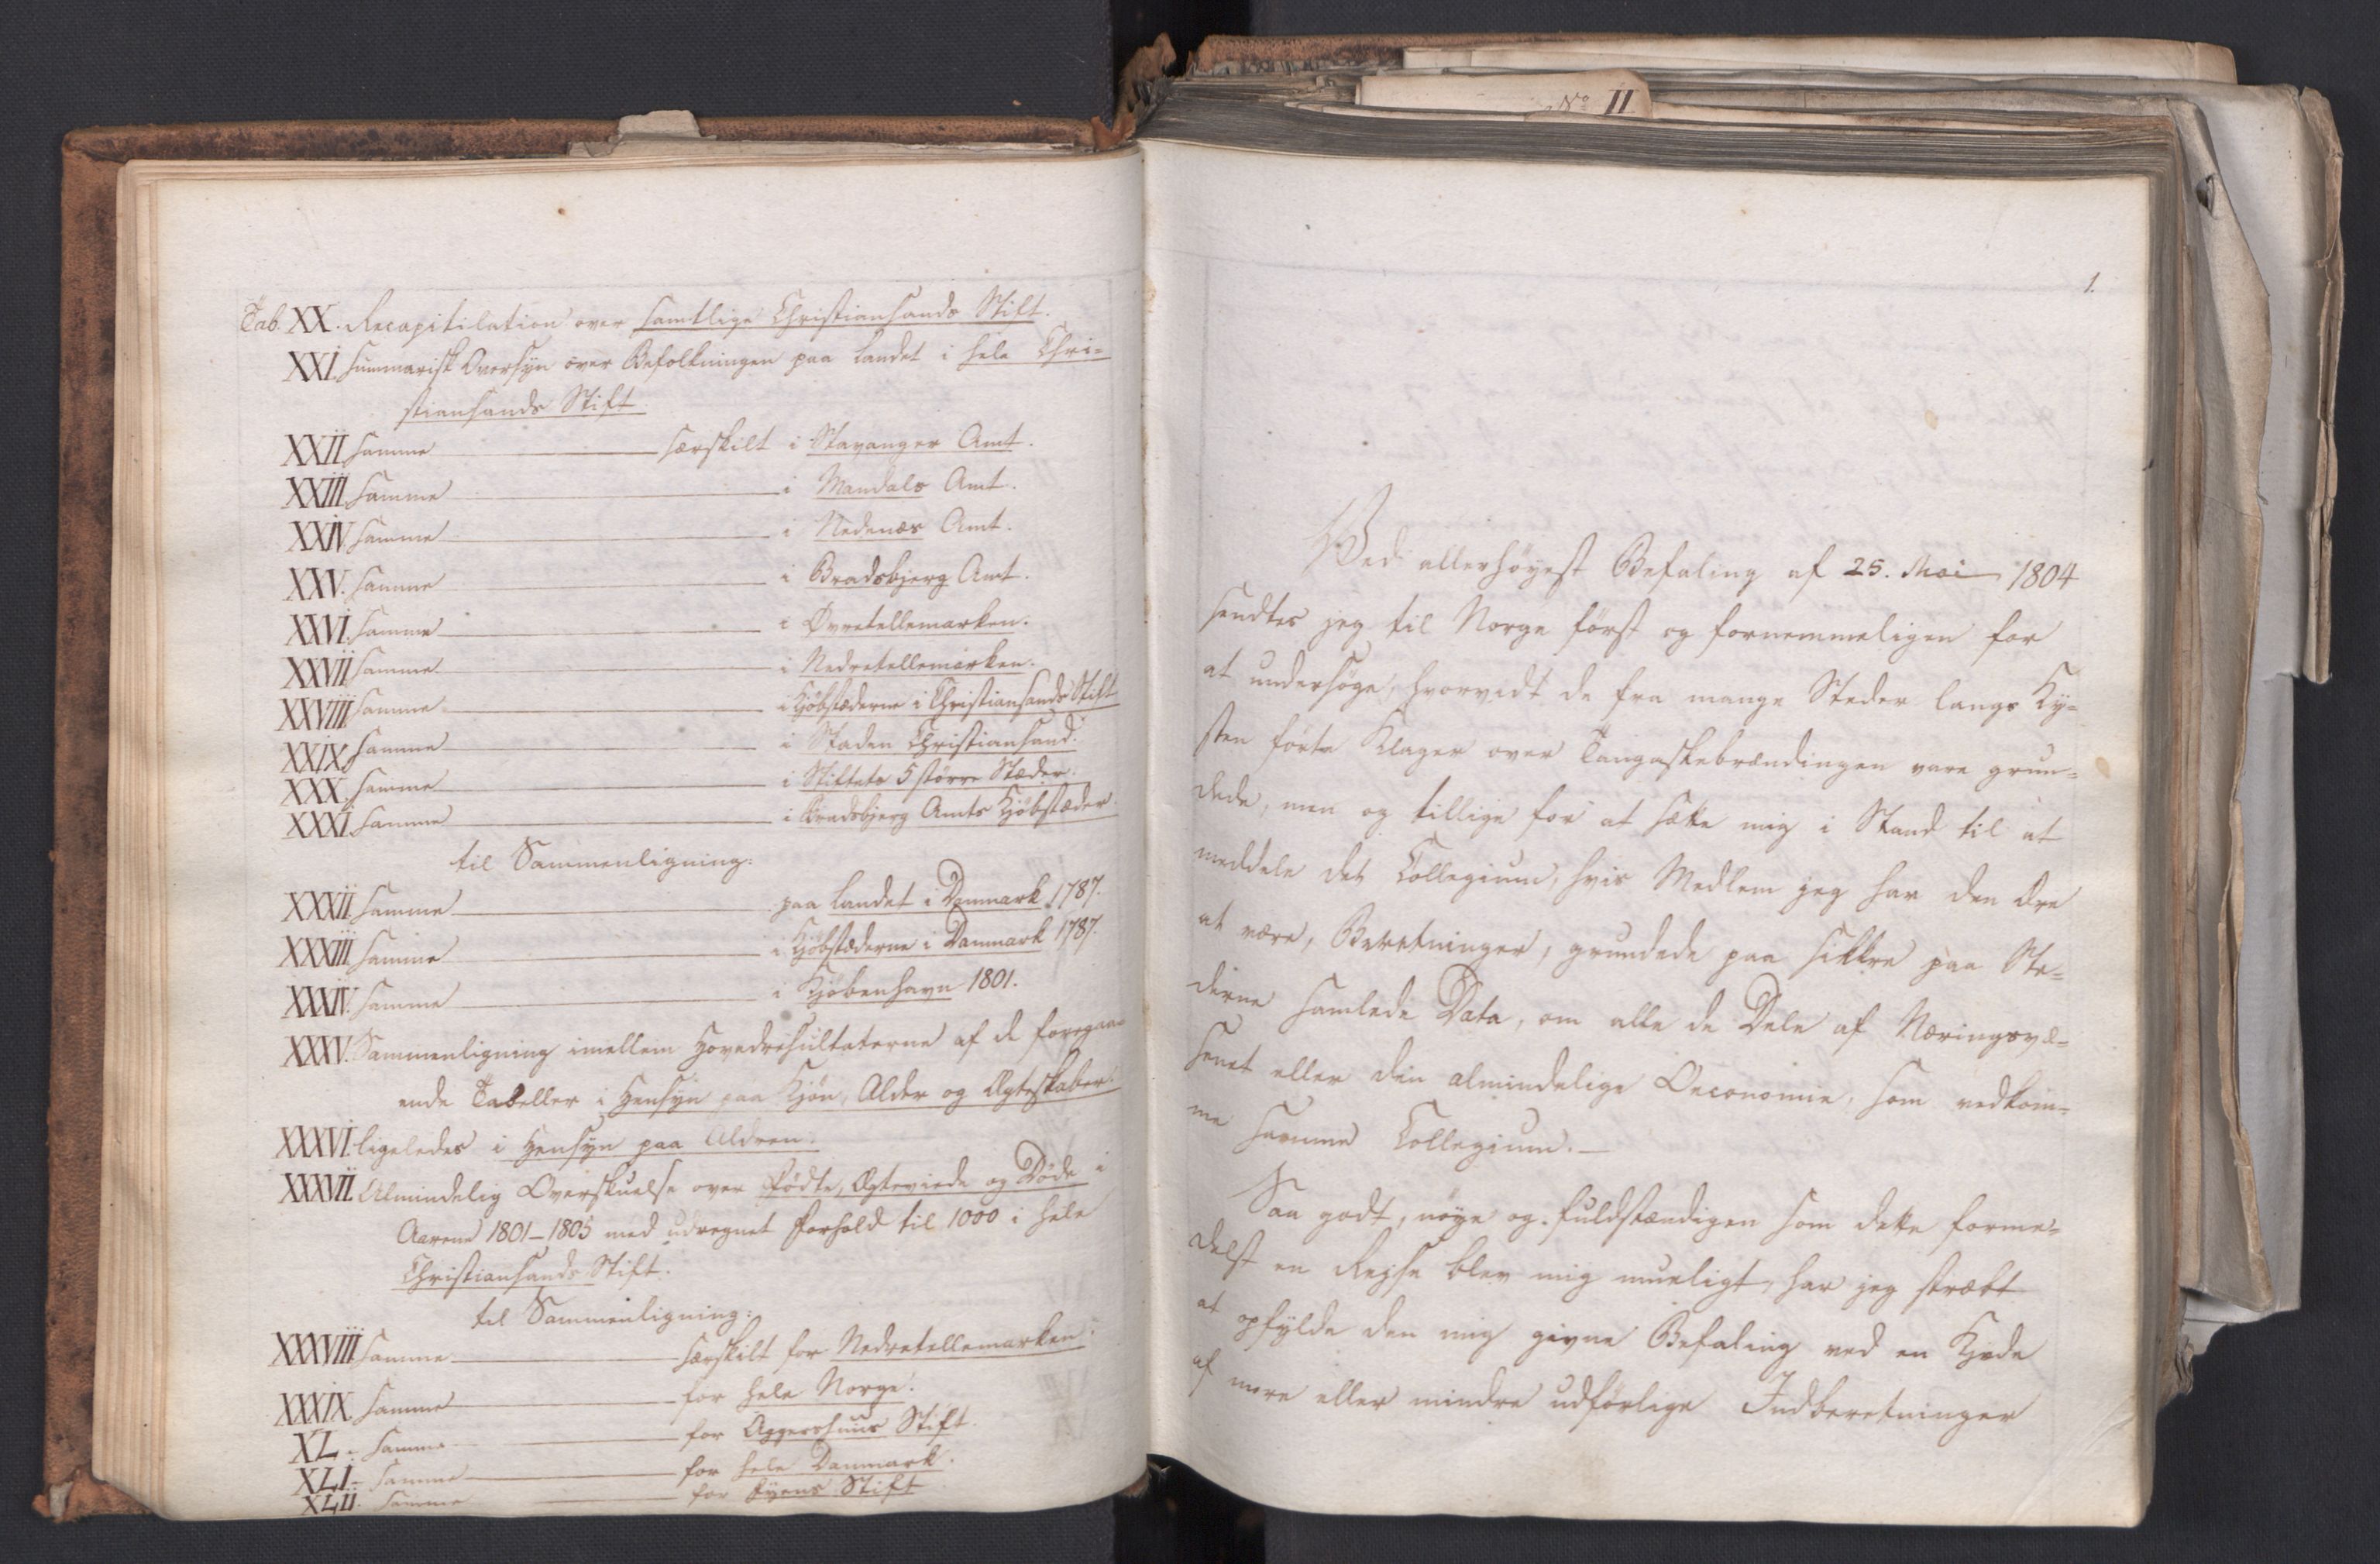 Tab. XX. Recapitilation over samtlige Christiansands Stift.
XXI. Summarisk Oversyn over Befolkningen paa Landet i hele Chri=
stiansands Stift
XXII Samme særskilt i Stavanger Amt.
XXIII. Samme i Mandals Amt.
XXIV. Samme i Nedenæs Amt.
XXV. Samme i Bradsbjerg Amt.
XXVI. Samme i Øvretellemarken.
XXVII Samme i Nedretellemarken.
XXVIII Samme i Kjöbstæderne i Christiansands Stift
XXIX. Samme i Staden Christiansand.
XXX. Samme i Stiftets 5 större Stæder.
XXXI. Samme i Bradsbjerg Amts Kjöbstæder.
til Sammenligning:
XXXII. Samme paa Landet i Danmark 1787.
XXXIII. Samme i Kjöbstæderne i Danmark 1787.
XXXIV. Samme i Kjöbenhavn 1801.
XXXV. Sammenligning imellem Hovedresultaterne af de foregaa=
ende Tabeller i Hensyn paa Kjön, Alder og Ægteskaber.
XXXVI. ligeledes i Hensyn paa Aldren.
XXXVII. Almindelig Overskuelse over Födte, Ægteviede og Döde i
Aarene 1801-1805 med udregnet Forhold til 1000 i hele
Christiansands Stift.
til Sammenligning:
XXXVIII. Samme særskilt for Nedretellemarken.
XXXIX. Samme for hele Norge.
XL. Samme for Aggershuus Stift.
XLI. Samme for hele Danmark.
XLII. Samme for Fyens Stift
No II
1.
Ved allerhöyest Befaling af 25. Mai 1804
sendtes jeg til Norge först og fornemmeligen for
at undersöge, hvorvidt de fra mange Steder langs Ky=
sten förte Klager over Tangaskebrændingen vare grun=
dede, men og tillige for at sætte mig i Stand til at
meddele det Collegium, hvis Medlem jeg har den Ære
at være, Beretninger, grundede paa sikkre paa Ste=
derne samlede Data, om alle de Dele af Næringsvæ=
senet eller den almindelige Oeconomie, som vedkom=
me samme Collegium.—
Saa godt, nöye og fuldstændigen som dette forme=
delst en Rejse blev mig mueligt, har jeg stræbt
at opfylde den mig givne Befaling ved en Kjæde
af mere eller mindre udförlige Indberetninger